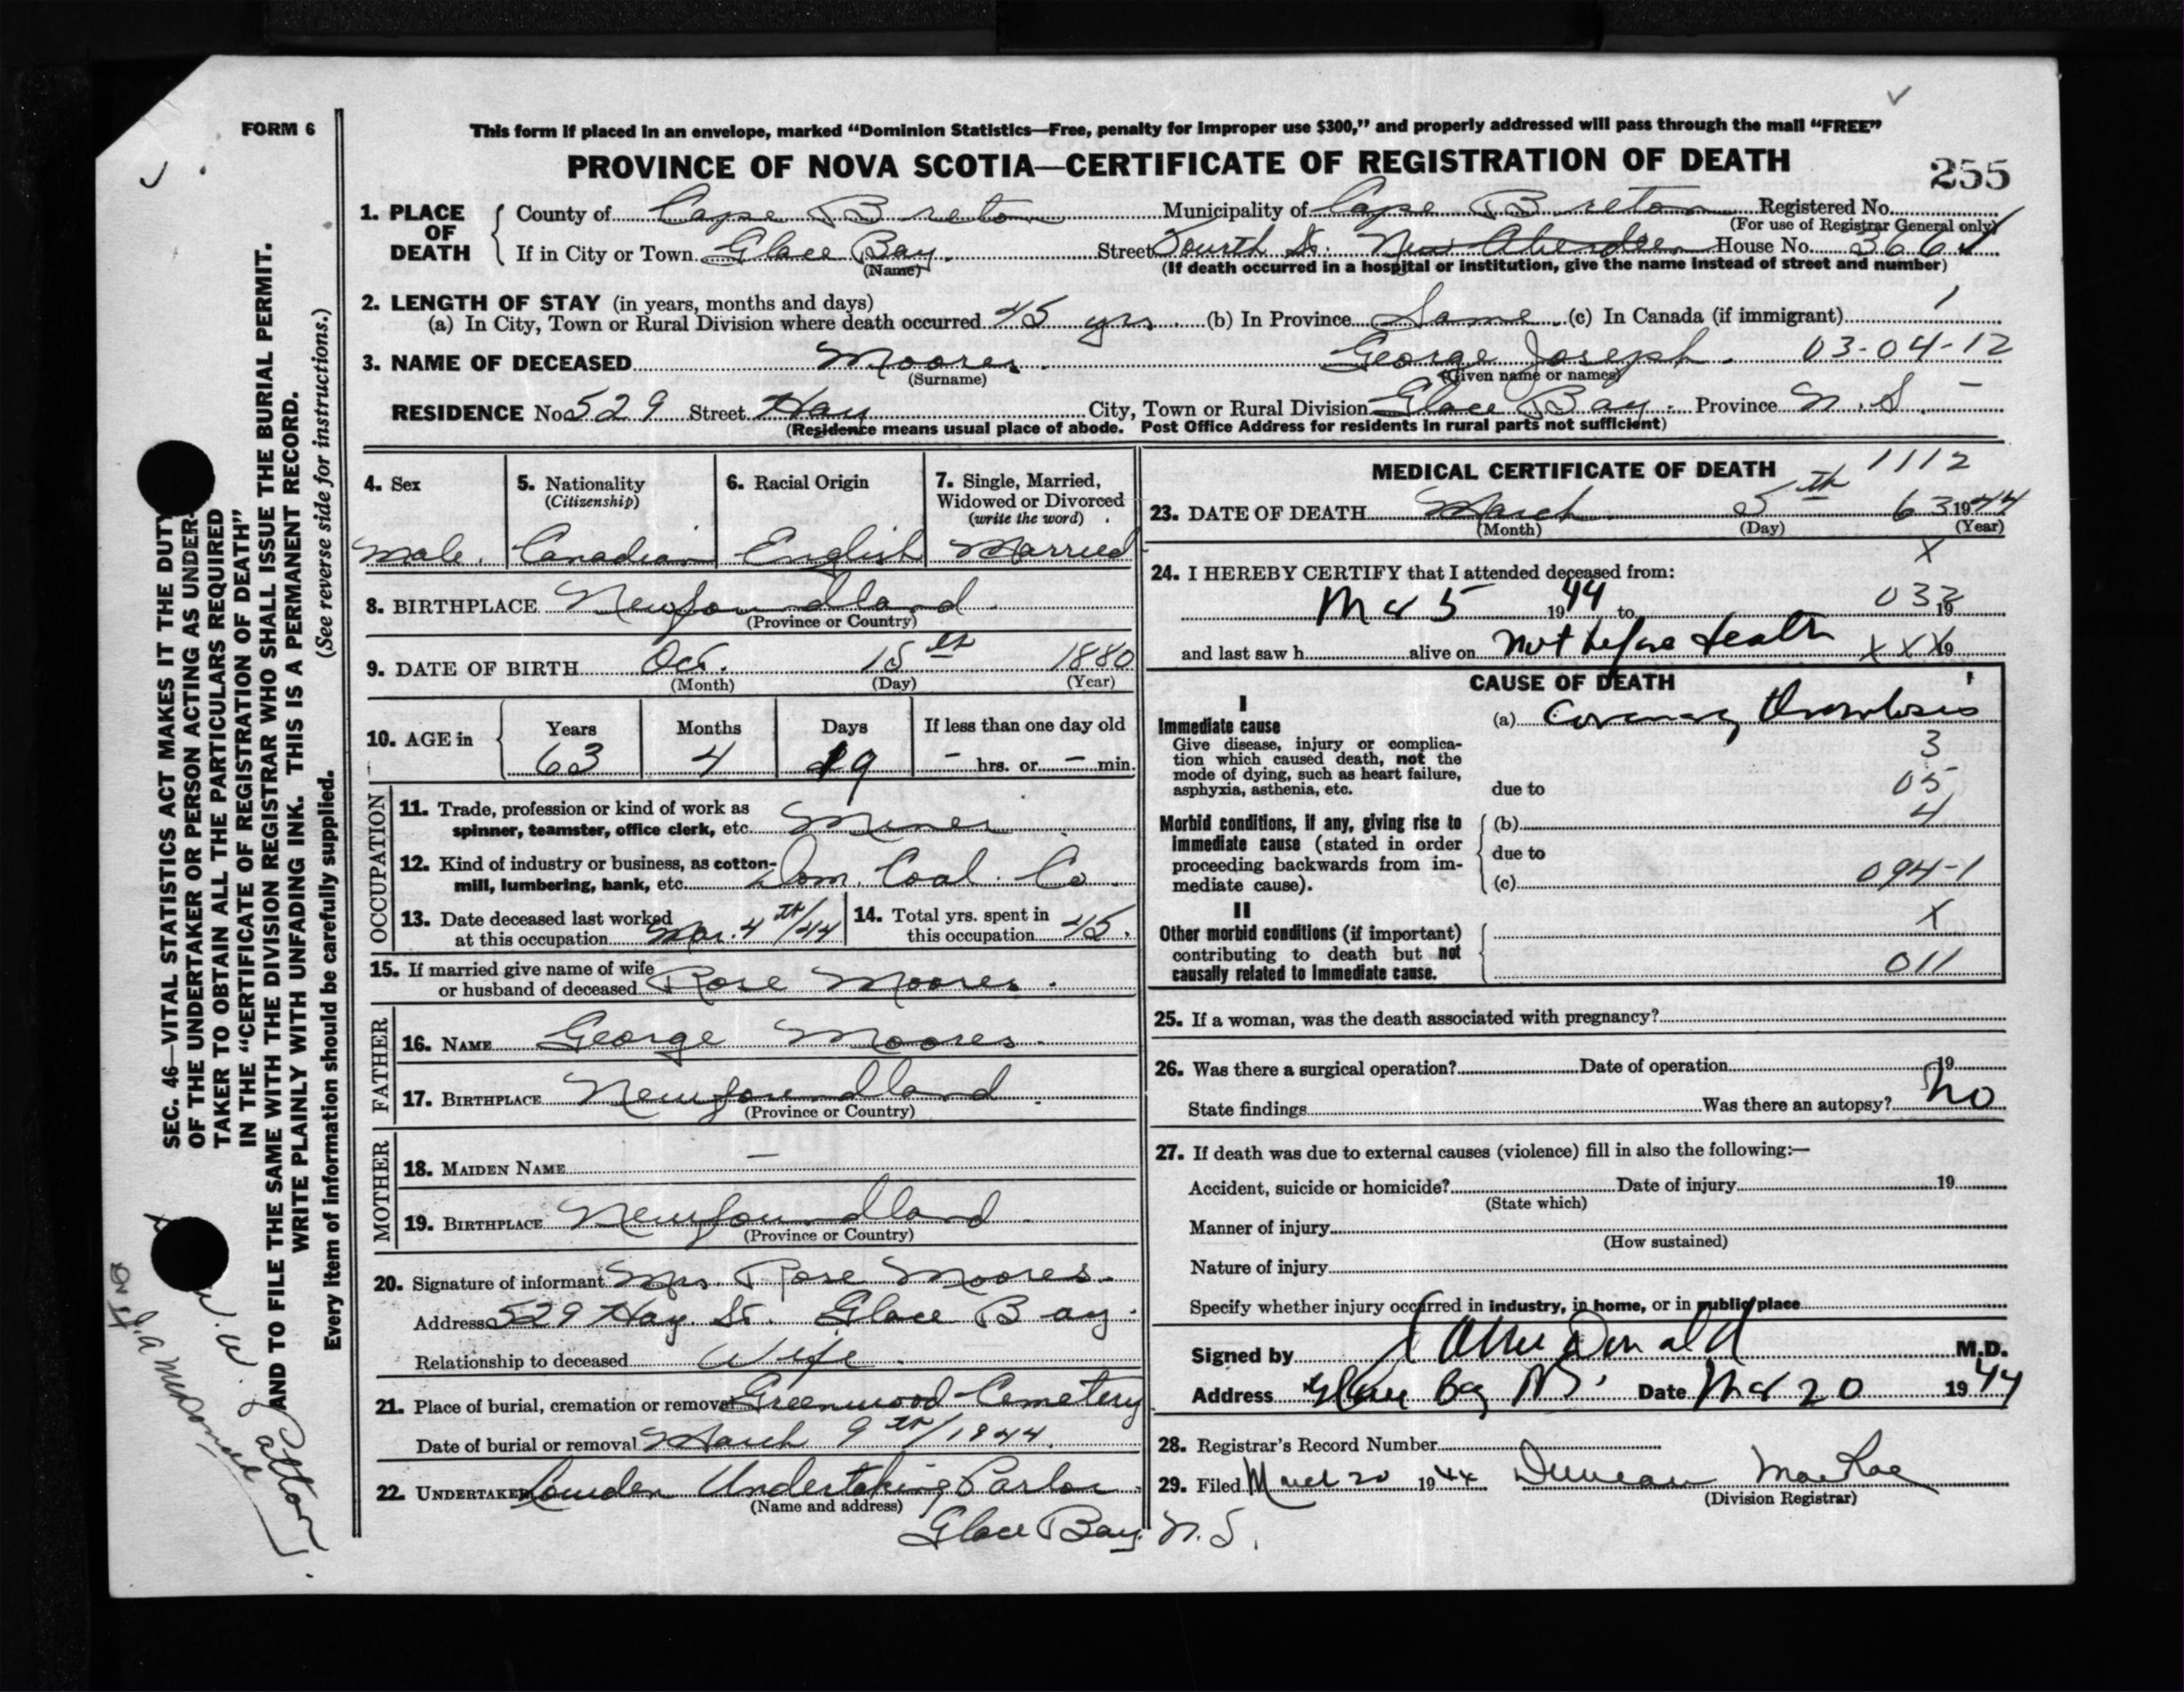 FORM 6
This form if placed in an envelope, marked “Dominion Statistics—Free, penalty for improper use $300,” and properly addressed will pass through the mail “FREE”
PROVINCE OF NOVA SCOTIA—CERTIFICATE OF REGISTRATION OF DEATH
255
1. PLACE OF DEATH
County of Cape Breton Municipality of Cape Breton Registered No.
(For use of Registrar General only)
If in City or Town Glace Bay. Street Fourth St. New Aberdeen House No. 366
(Name) (If death occurred in a hospital or institution, give the name instead of street and number)
2. LENGTH OF STAY (in years, months and days)
(a) In City, Town or Rural Division where death occurred 45 yrs. (b) In Province Same (c) In Canada (if immigrant) 1
3. NAME OF DECEASED Moores. George Joseph. 03-04-12
(Surname) (Given name or names)
RESIDENCE No. 529 Street Hay City, Town or Rural Division Glace Bay. Province N.S. —
(Residence means usual place of abode. Post Office Address for residents in rural parts not sufficient)
4. Sex
Male.
5. Nationality
(Citizenship)
Canadian
6. Racial Origin
English
7. Single, Married,
Widowed or Divorced
(write the word)
Married
8. BIRTHPLACE Newfoundland.
(Province or Country)
9. DATE OF BIRTH Oct. 15th 1880
(Month) (Day) (Year)
10. AGE in
Years Months Days If less than one day old
63 4 19 – hrs. or – min.
OCCUPATION
11. Trade, profession or kind of work as
spinner, teamster, office clerk, etc. Miner
12. Kind of industry or business, as cotton-
mill, lumbering, bank, etc. Dom. Coal. Co.
13. Date deceased last worked
at this occupation Mar. 4th/44
14. Total yrs. spent in
this occupation 45.
15. If married give name of wife
or husband of deceased Rose Moores.
FATHER
16. NAME George Moores.
17. BIRTHPLACE Newfoundland.
(Province or Country)
MOTHER
18. MAIDEN NAME —
19. BIRTHPLACE Newfoundland.
(Province or Country)
20. Signature of informant Mrs. Rose Moores.
Address 529 Hay. St. Glace Bay.
Relationship to deceased Wife.
21. Place of burial, cremation or removal Greenwood Cemetery
Date of burial or removal March 9th/1944.
22. UNDERTAKER Lowden Undertaking Parlor.
(Name and address)
Glace Bay. N.S.
MEDICAL CERTIFICATE OF DEATH 1112
23. DATE OF DEATH March 5th 63 1944
(Month) (Day) (Year)
X
24. I HEREBY CERTIFY that I attended deceased from:
Mar 5 1944 to 032 19
and last saw h alive on Not before death XXX 19
CAUSE OF DEATH
I
Immediate cause
Give disease, injury or complica-
tion which caused death, not the
mode of dying, such as heart failure,
asphyxia, asthenia, etc.
(a) Coronary thrombosis
3
due to 05
Morbid conditions, if any, giving rise to
immediate cause (stated in order
proceeding backwards from im-
mediate cause).
(b) 4
due to
(c) 094-1
II
Other morbid conditions (if important)
contributing to death but not
causally related to immediate cause.
X
011
25. If a woman, was the death associated with pregnancy?
26. Was there a surgical operation? Date of operation 19
State findings Was there an autopsy? No
27. If death was due to external causes (violence) fill in also the following:—
Accident, suicide or homicide? Date of injury 19
(State which)
Manner of injury
(How sustained)
Nature of injury
Specify whether injury occurred in industry, in home, or in public place
Signed by M.D.
Address Glace Bay NS. Date Mar 20 1944
28. Registrar's Record Number
29. Filed March 20 1944 Duncan MacRae
(Division Registrar)
SEC. 46—VITAL STATISTICS ACT MAKES IT THE DUTY
OF THE UNDERTAKER OR PERSON ACTING AS UNDER-
TAKER TO OBTAIN ALL THE PARTICULARS REQUIRED
IN THE “CERTIFICATE OF REGISTRATION OF DEATH”
AND TO FILE THE SAME WITH THE DIVISION REGISTRAR WHO SHALL ISSUE THE BURIAL PERMIT.
WRITE PLAINLY WITH UNFADING INK. THIS IS A PERMANENT RECORD.
(See reverse side for instructions.)
Every item of information should be carefully supplied.
W. W. Patton.
J. A. McDonald